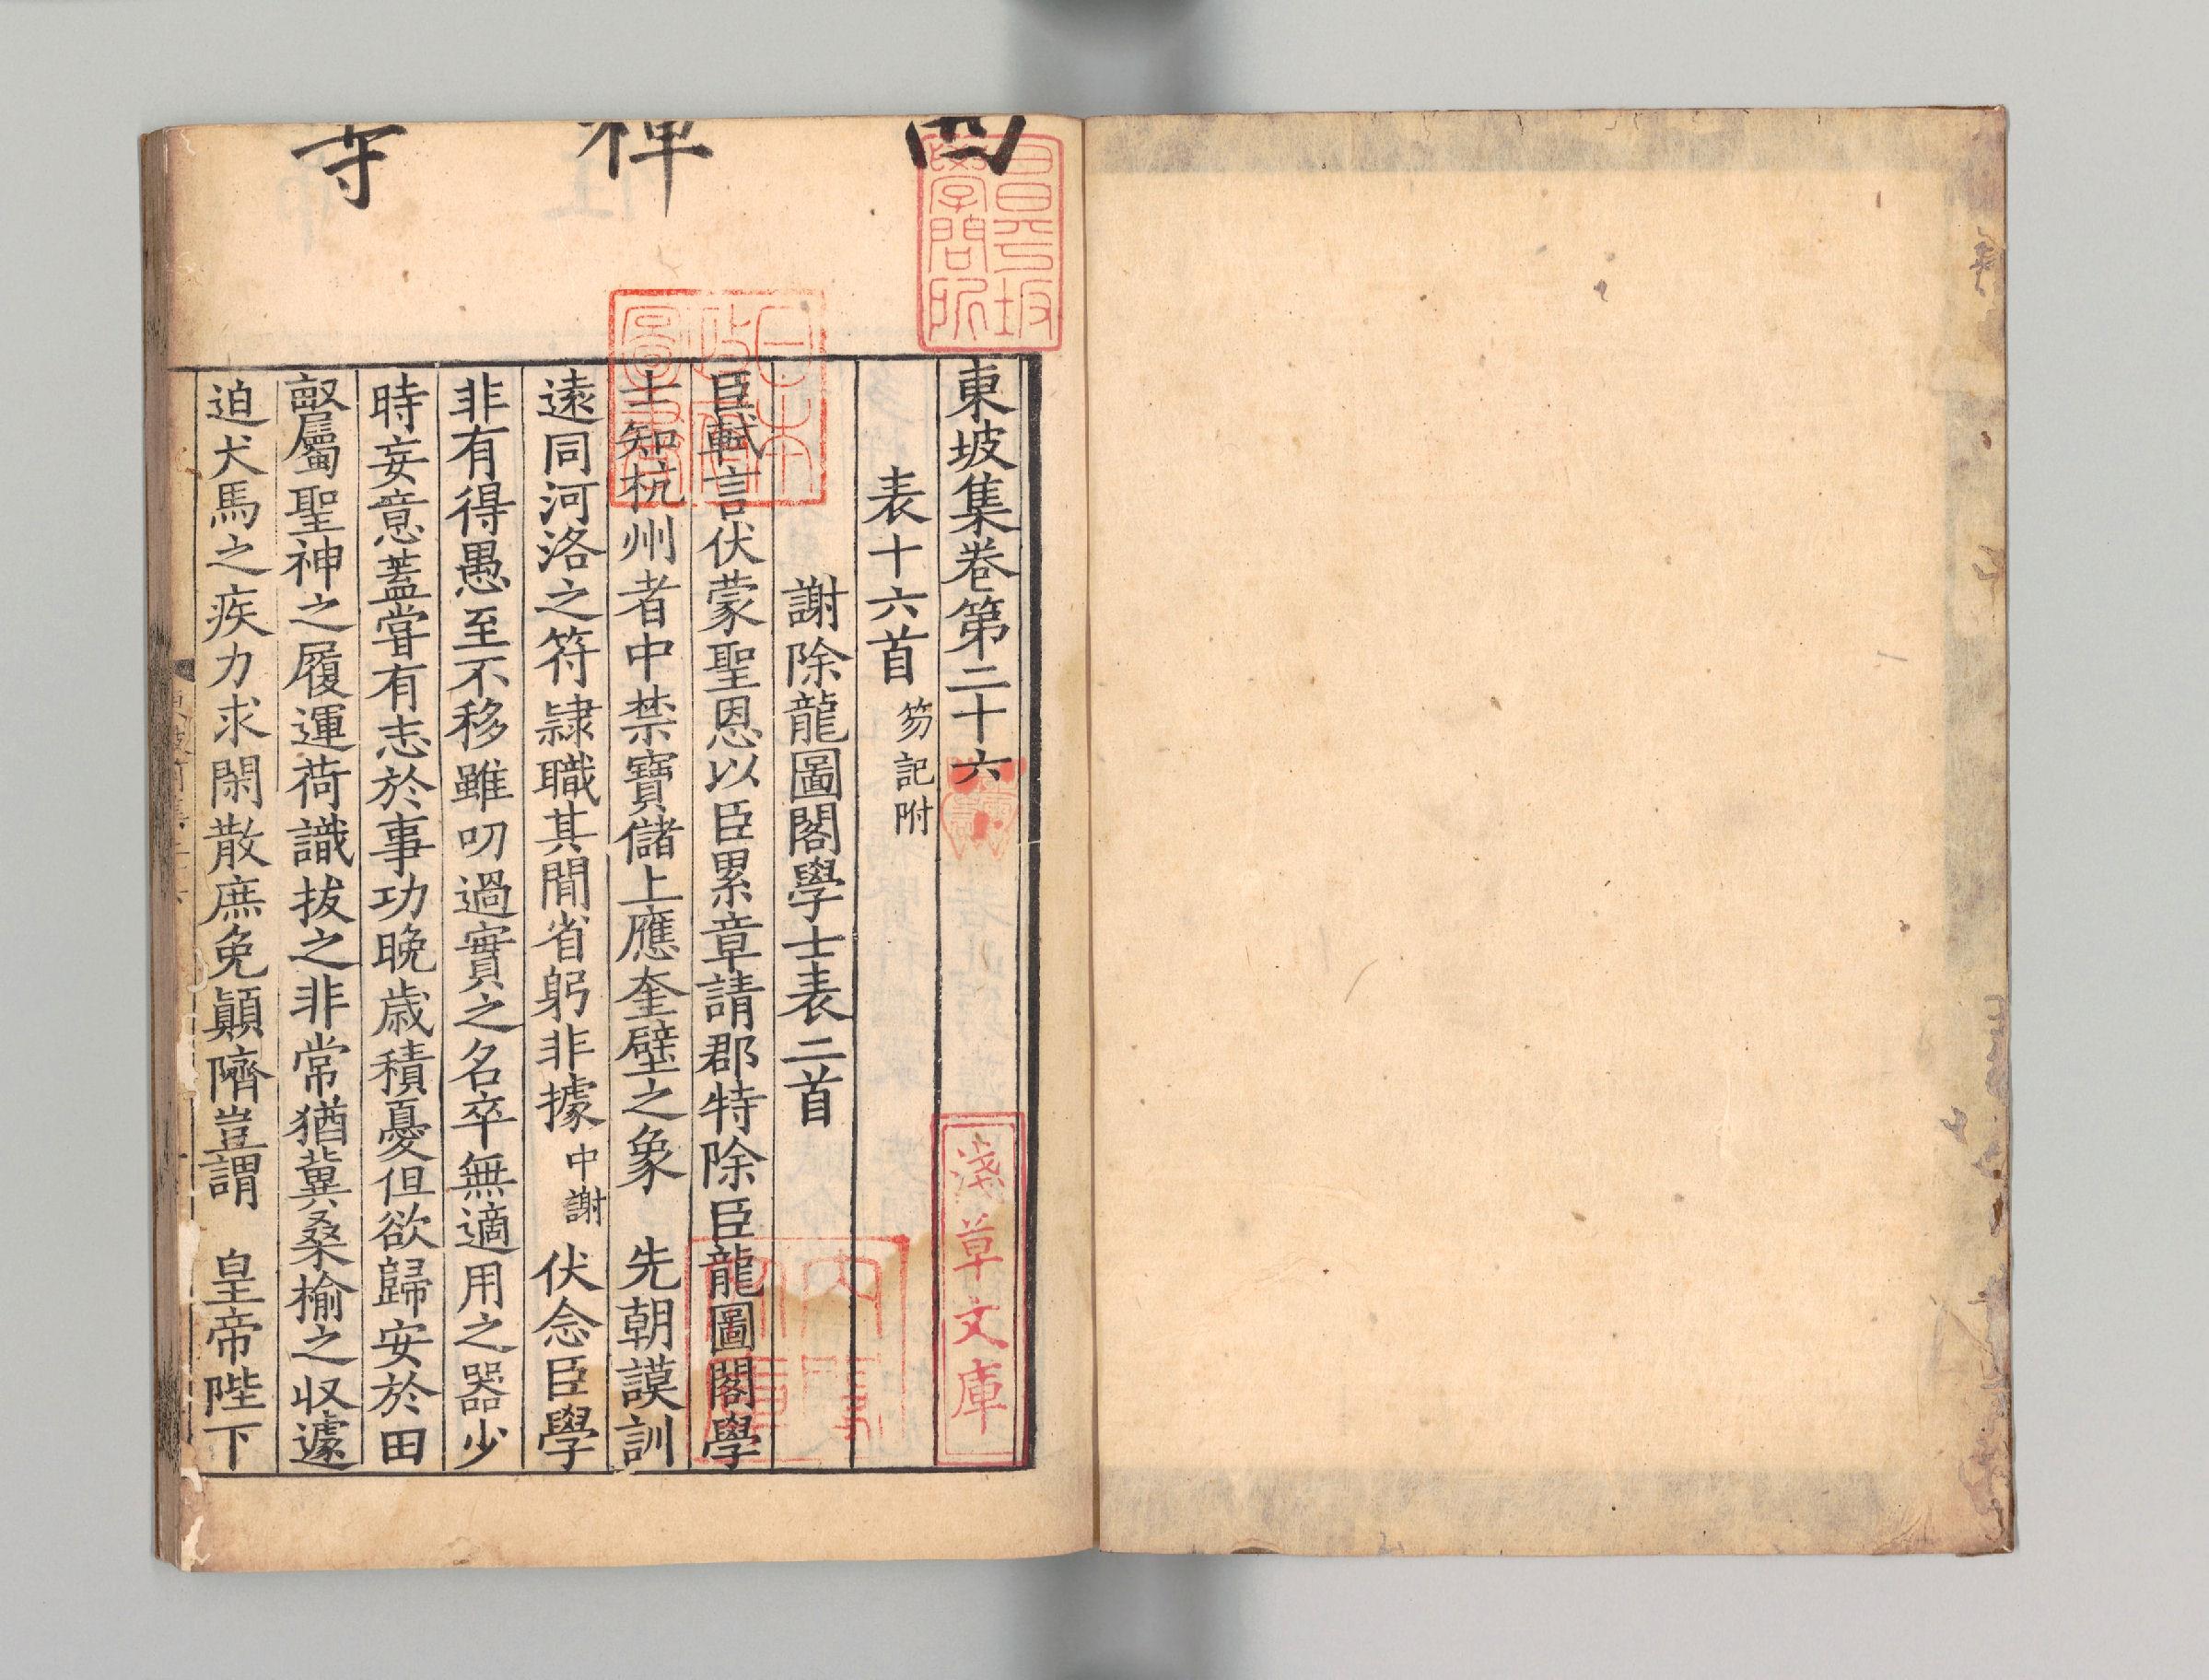 西禅寺
昌平坂
學問所
日本
政府
圖書
東坡集卷第二十六
淺草文庫
表十六首 笏記附
謝除龍圖閣學士表二首
臣軾言伏蒙聖恩以臣累章請郡特除臣龍圖閣學
士知杭州者中禁寶儲上應奎壁之象 先朝謨訓
遠同河洛之符隷職其閒省躬非據 中謝 伏念臣學
非有得愚至不移雖叨過實之名卒無適用之器少
時妄意蓋甞有志於事功晚歳積憂但欲歸安於田
畝屬聖神之履運荷識拔之非常猶冀桑榆之収遽
迫犬馬之疾力求閑散庶免顛隮豈謂 皇帝陛下